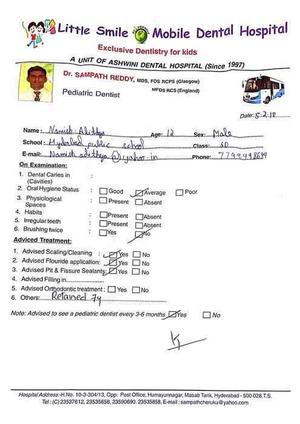 Little Smile Mobile Dental Hospital
Exclusive Dentistry for kids
A UNIT OF ASHWINI DENTAL HOSPITAL (Since 1997)
Dr. SAMPATH REDDY, MDS, FDS RCPS (Glasgow)
MFDS RCPS (England)
Pediatric Dentist
Date: 5.2.18
Name: Namish Adithya Age: 12 Sex: Male
School: Hyderabad public school Class: 6D
E-mail: Namish.adithya@yahoo.in Phone:
On Examination:
1. Dental Caries in :
(Cavities)
2. Oral Hygiene Status : Good Average Poor
3. Physiological : Present Absent
Spaces
4. Habits : Present Absent
5. Irregular teeth : Present Absent
6. Brushing twice : Yes No
Advised Treatment:
1. Advised Scaling/Cleaning : Yes No
2. Advised Flouride application: Yes No
3. Advised Pit & Fissure Sealants: Yes No
4. Advised Filling in
5. Advised Orthodontic treatment : Yes No
6. Others: Retained 7y
Note: Advised to see a pediatric dentist every 3-6 months Yes No
Hospital Address:-H.No. 10-3-304/13, Opp: Post Office, Humayunnagar, Masab Tank, Hyderabad - 500 028.T.S.
Tel : (C) 23537612, 23535858, 23590690. 23535858, E-mail : sampathcheruku@yahoo.com